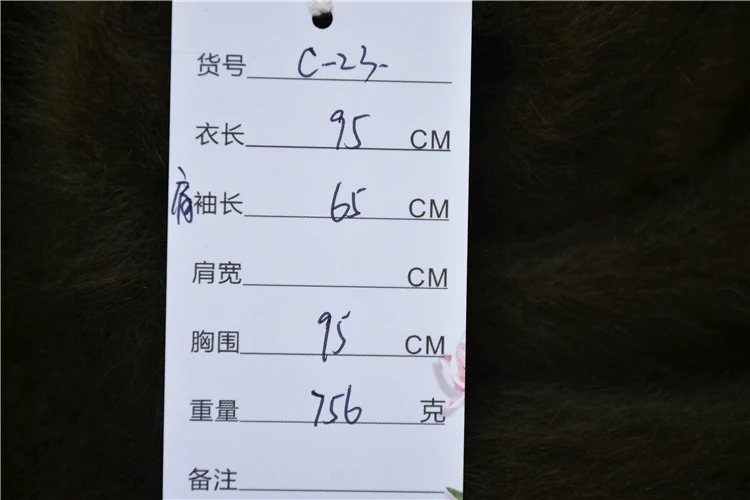 货号 C-23-
衣长 95 CM
肩袖长 65 CM
肩宽 CM
胸围 95 CM
重量 756 克
备注